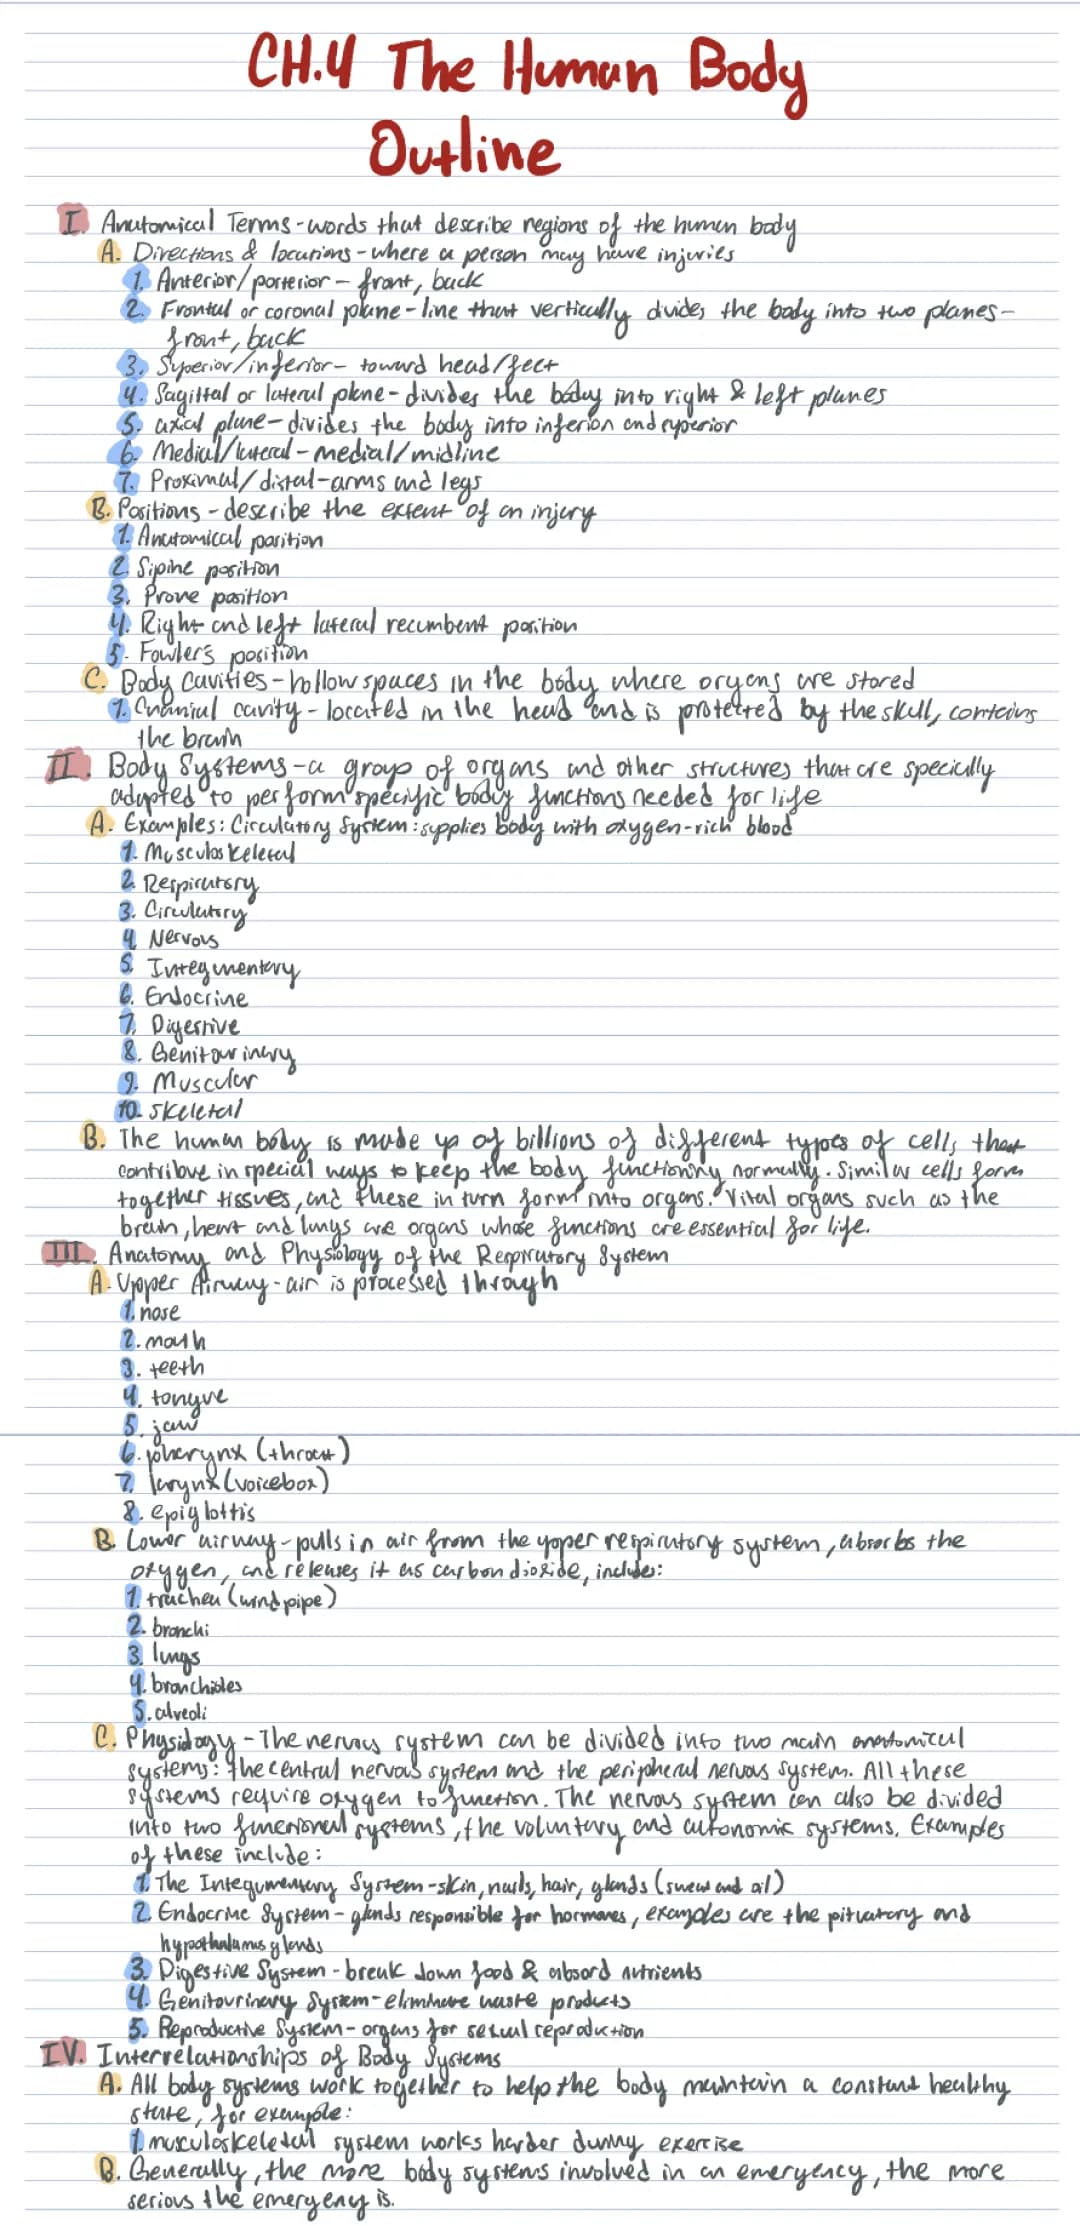 CH.4 The Human Body
Outline
I. Anatomical Terms - words that describe regions of the human body
A. Directions & locations - where a person may have injuries
1. Anterior/posterior - front, back
2. Frontal or coronal plane - line that vertically divides the body into two planes -
front, back
3. Superior/inferior - toward head/feet
4. Sagittal or lateral plane - divides the body into right & left planes
5. axial plane - divides the body into inferior and superior
6. Medial/lateral - medial/midline
7. Proximal/distal - arms and legs
B. Positions - describe the extent of an injury
1. Anatomical position
2. Sipine position
3. Prove position
4. Right and left lateral recumbent position
5. Fowler's position
C. Body Cavities - hollow spaces in the body where organs are stored
1. Cranial cavity - located in the head and is protected by the skull, contains
the brain
II. Body Systems - a group of organs and other structures that are specially
adapted to perform specific body functions needed for life
A. Examples: Circulatory System: supplies body with oxygen-rich blood
1. Musculoskeletal
2. Respiratory
3. Circulatory
4. Nervous
5. Integumentary
6. Endocrine
7. Digestive
8. Genitourinary
9. Muscular
10. Skeletal
B. The human body is made up of billions of different types of cells that
contribue in special ways to keep the body functioning normally. Similar cells form
together tissues, and these in turn form into organs. Vital organs such as the
brain, heart and lungs are organs whose functions are essential for life.
III. Anatomy and Physiology of the Respiratory System
A. Upper Airway - air is processed through
1. nose
2. mouth
3. teeth
4. tongue
5. jaw
6. pharynx (throat)
7. larynx (voicebox)
8. epiglottis
B. Lower airway - pulls in air from the upper respiratory system, absorbs the
oxygen, and releases it as carbon dioxide, includes:
1. trachea (windpipe)
2. bronchi
3. lungs
4. bronchioles
5. alveoli
C. Physiology - The nervous system can be divided into two main anatomical
systems: the central nervous system and the peripheral nervous system. All these
systems require oxygen to function. The nervous system can also be divided
into two functional systems, the voluntary and autonomic systems. Examples
of these include:
1. The Integumentary System - skin, nails, hair, glands (sweat and oil)
2. Endocrine System - glands responsible for hormones, examples are the pituatary and
hypothalamus glands
3. Digestive System - break down food & absord nutrients
4. Genitourinary System - eliminate waste products
5. Reproductive System - organs for sexual reproduction
IV. Interrelationships of Body Systems
A. All body systems work together to help the body maintain a constant healthy
state, for example:
1. musculoskeletal system works harder during exercise
B. Generally, the more body systems involved in an emergency, the more
serious the emergency is.